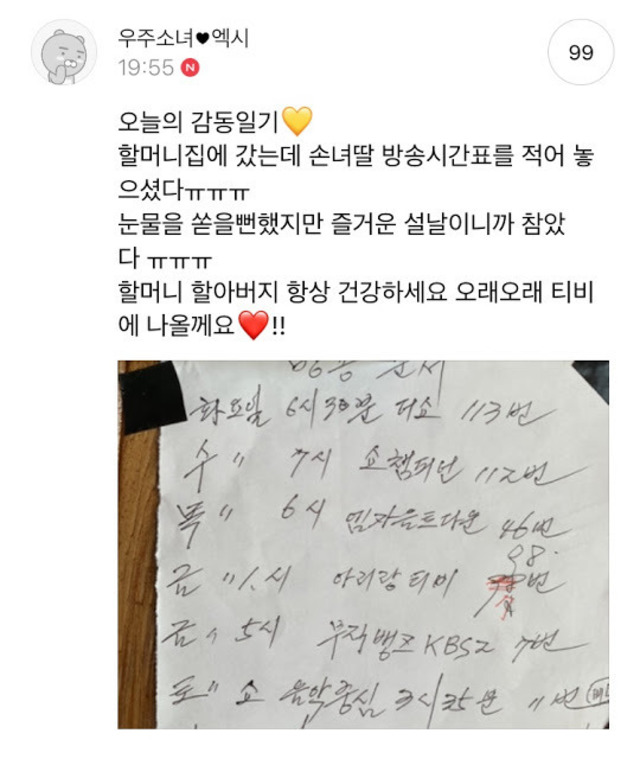 우주소녀♥엑시
19:55 N
99
오늘의 감동일기💛
할머니집에 갔는데 손녀딸 방송시간표를 적어 놓
으셨다ㅠㅠㅠ
눈물을 쏟을뻔했지만 즐거운 설날이니까 참았
다 ㅠㅠㅠ
할머니 할아버지 항상 건강하세요 오래오래 티비
에 나올께요❤️!!
방송 순서
화요일 6시30분 더쇼 113번
수 〃 7시 쇼챔피넌 112번
목 〃 6시 엠카운트다운 46번
98.
금 〃 1.시 아리랑티비 번
금 〃 5시 무직뱅크 KBS2 7번
토 〃 쇼 음악중심 3시35분 11번